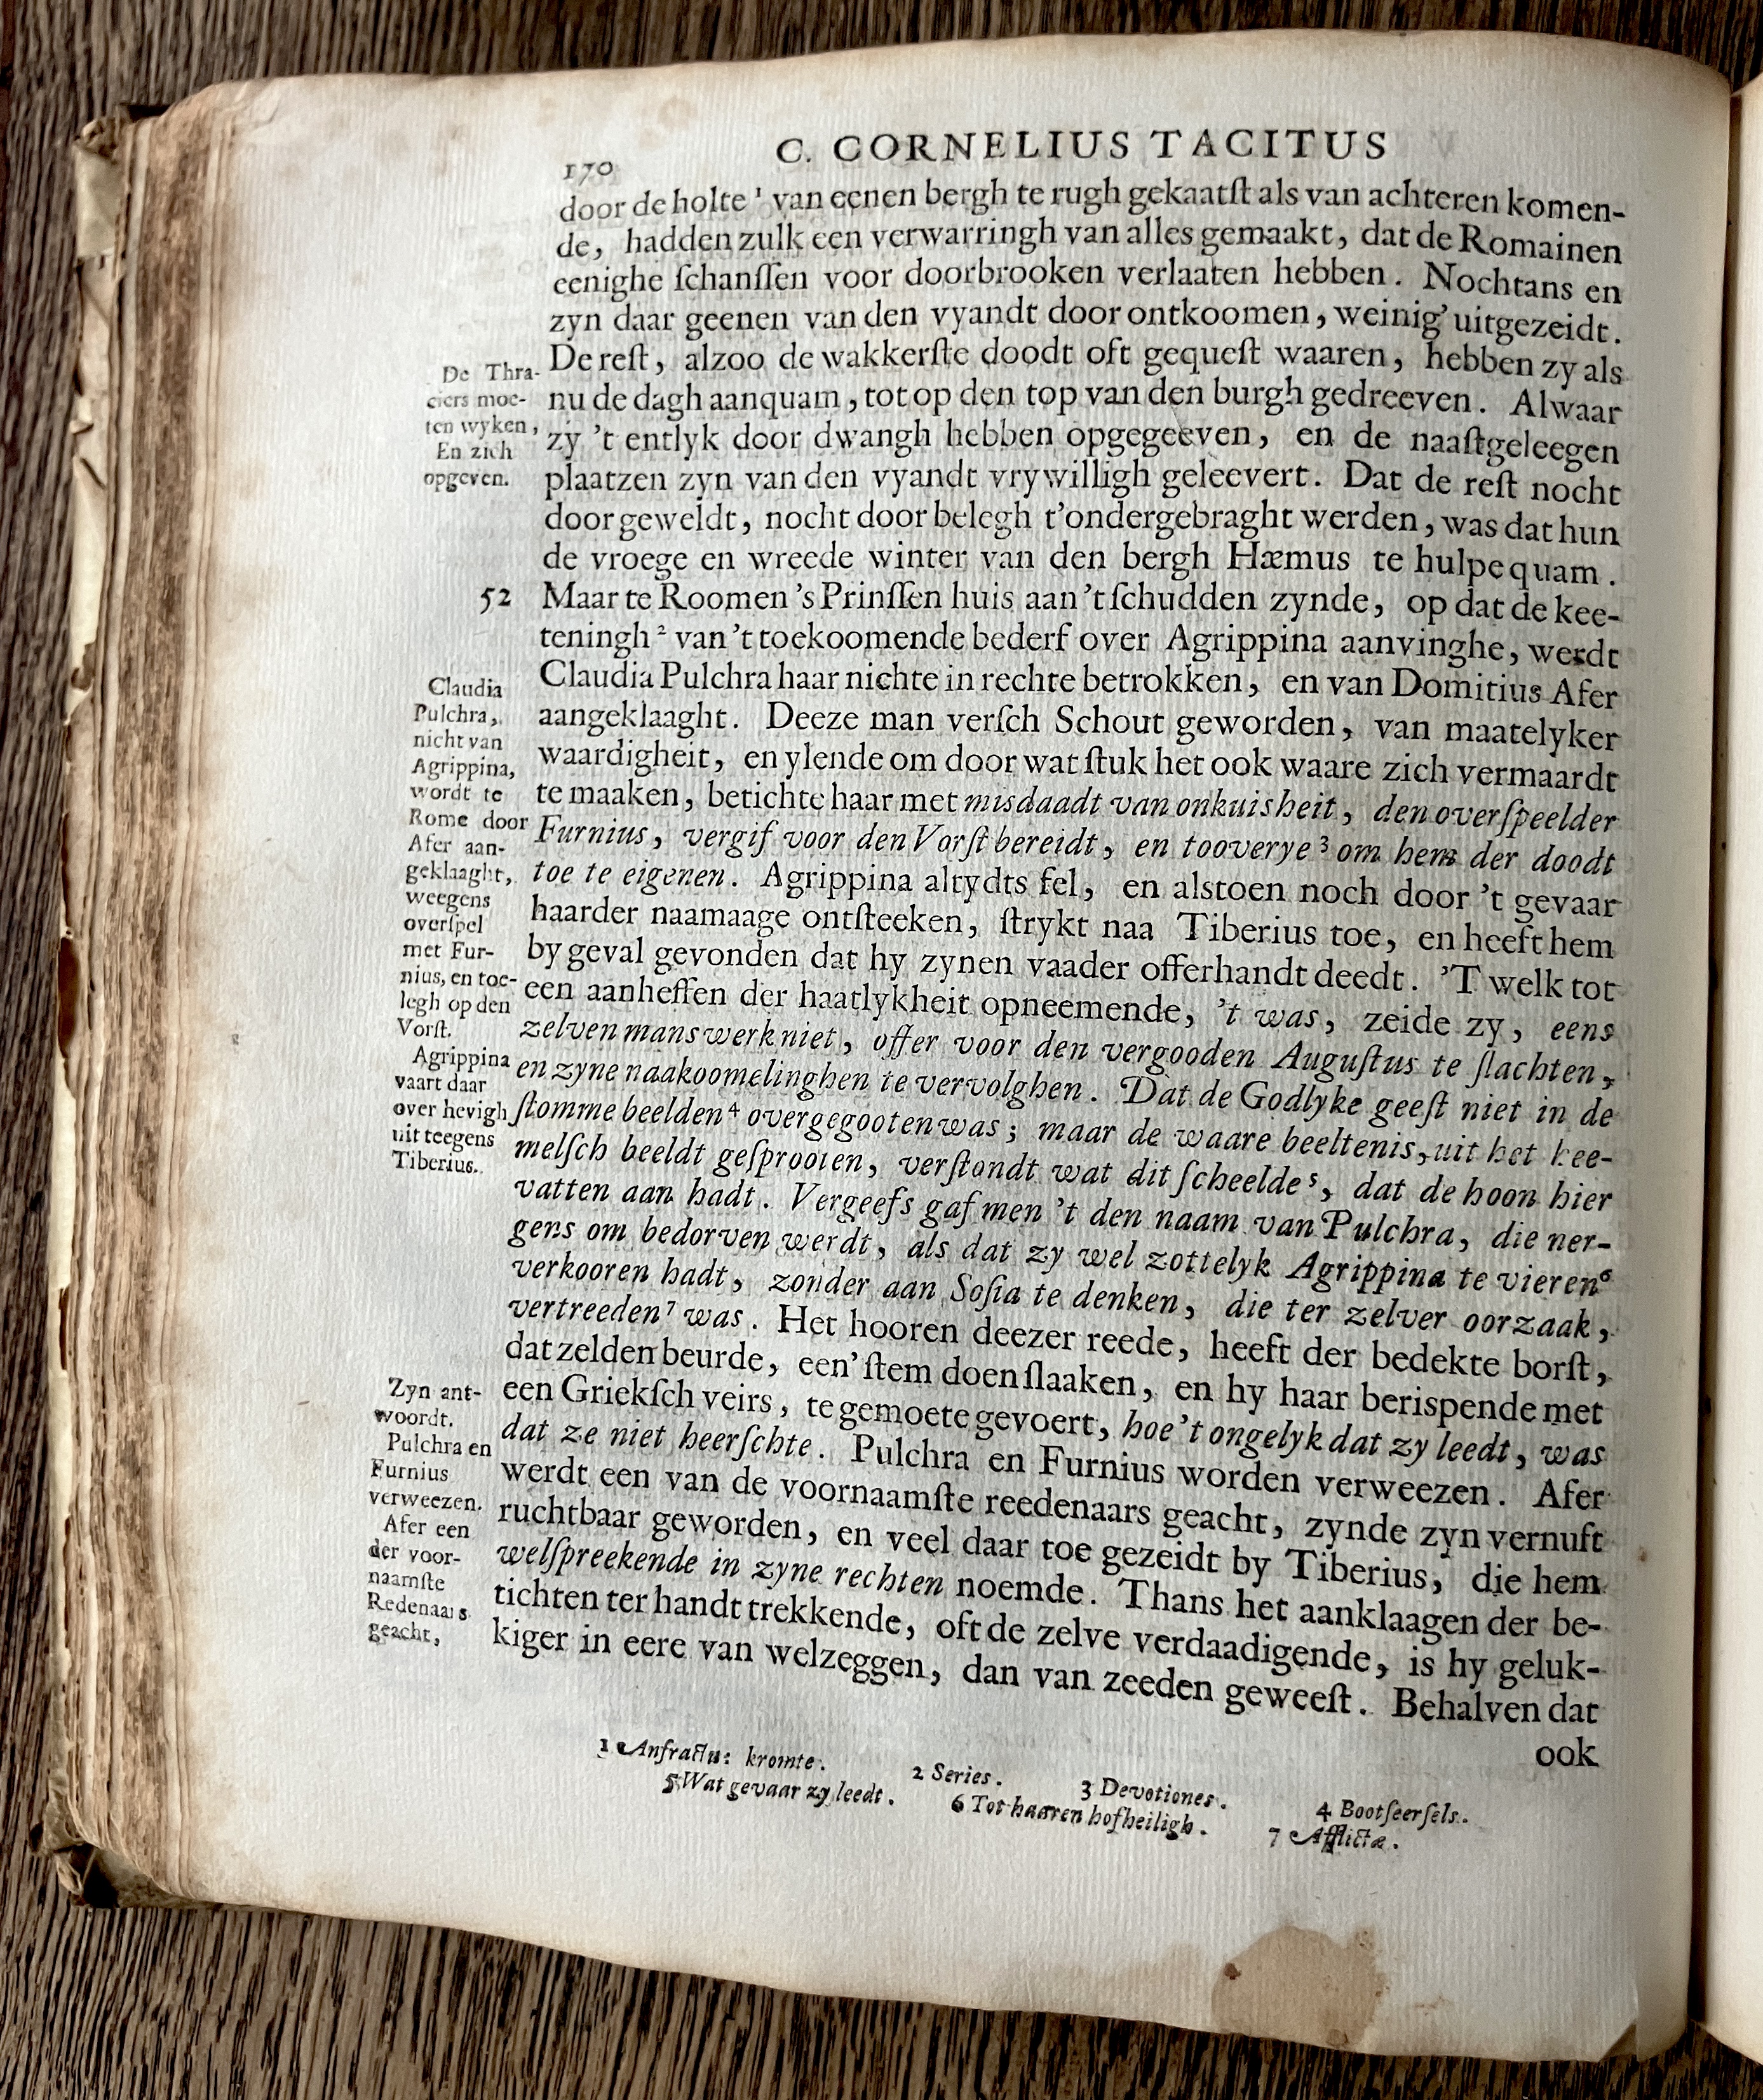 170
C. CORNELIUS TACITUS
door de holte ¹ van eenen bergh te rugh gekaatſt als van achteren komen-
de, hadden zulk een verwarringh van alles gemaakt, dat de Romainen
eenighe ſchanſſen voor doorbrooken verlaaten hebben. Nochtans en
zyn daar geenen van den vyandt door ontkoomen, weinig' uitgezeidt.
De reſt, alzoo de wakkerſte doodt oft gequeſt waaren, hebben zy als
nu de dagh aanquam, tot op den top van den burgh gedreeven. Alwaar
zy 't entlyk door dwangh hebben opgegeeven, en de naaſtgeleegen
plaatzen zyn van den vyandt vrywilligh geleevert. Dat de reſt nocht
door geweldt, nocht door belegh t'ondergebraght werden, was dat hun
de vroege en wreede winter van den bergh Hæmus te hulpe quam.
De Thra-
ciers moe-
ten wyken,
En zich
opgeven.
52 Maar te Roomen 's Prinſſen huis aan 't ſchudden zynde, op dat de kee-
teningh ² van 't toekoomende bederf over Agrippina aanvinghe, werdt
Claudia Pulchra haar nichte in rechte betrokken, en van Domitius Afer
aangeklaaght. Deeze man verſch Schout geworden, van maatelyker
waardigheit, en ylende om door wat ſtuk het ook waare zich vermaardt
te maaken, betichte haar met misdaadt van onkuisheit, den overſpeelder
Furnius, vergif voor den Vorſt bereidt, en tooverye ³ om hem der doodt
toe te eigenen. Agrippina altydts fel, en alstoen noch door 't gevaar
haarder naamaage ontſteeken, ſtrykt naa Tiberius toe, en heeft hem
by geval gevonden dat hy zynen vaader offerhandt deedt. 'T welk tot
een aanheffen der haatlykheit opneemende, 't was, zeide zy, eens
zelven mans werk niet, offer voor den vergooden Auguſtus te ſlachten,
en zyne naakoomelinghen te vervolghen. Dat de Godlyke geeſt niet in de
ſtomme beelden⁴ overgegooten was; maar de waare beeltenis, uit het hee-
melſch beeldt geſprooten, verſtondt wat dit ſcheelde⁵, dat de hoon hier
vatten aan hadt. Vergeefs gaf men 't den naam van Pulchra, die ner-
gens om bedorven werdt, als dat zy wel zottelyk Agrippina te vieren⁶
verkooren hadt, zonder aan Soſia te denken, die ter zelver oorzaak,
vertreeden⁷ was. Het hooren deezer reede, heeft der bedekte borſt,
dat zelden beurde, een' ſtem doen ſlaaken, en hy haar berispende met
een Griekſch veirs, te gemoete gevoert, hoe 't ongelyk dat zy leedt, was
dat ze niet heerſchte. Pulchra en Furnius worden verweezen. Afer
werdt een van de voornaamſte reedenaars geacht, zynde zyn vernuft
ruchtbaar geworden, en veel daar toe gezeidt by Tiberius, die hem
welſpreekende in zyne rechten noemde. Thans het aanklaagen der be-
tichten ter handt trekkende, oft de zelve verdaadigende, is hy geluk-
kiger in eere van welzeggen, dan van zeeden geweeſt. Behalven dat
ook
Claudia
Pulchra,
nicht van
Agrippina,
wordt te
Rome door
Afer aan-
geklaaght,
weegens
overſpel
met Fur-
nius, en toe-
legh op den
Vorſt.
Agrippina
vaart daar
over hevigh
uit teegens
Tiberius.
Zyn ant-
woordt.
Pulchra en
Furnius
verweezen.
Afer een
der voor-
naamſte
Redenaars
geacht,
1 Anfractus: kromte. 2 Series. 3 Devotiones. 4 Bootſeerſels.
5 Wat gevaar zy leedt. 6 Tot haaren hofheiligh. 7 Afflictæ.